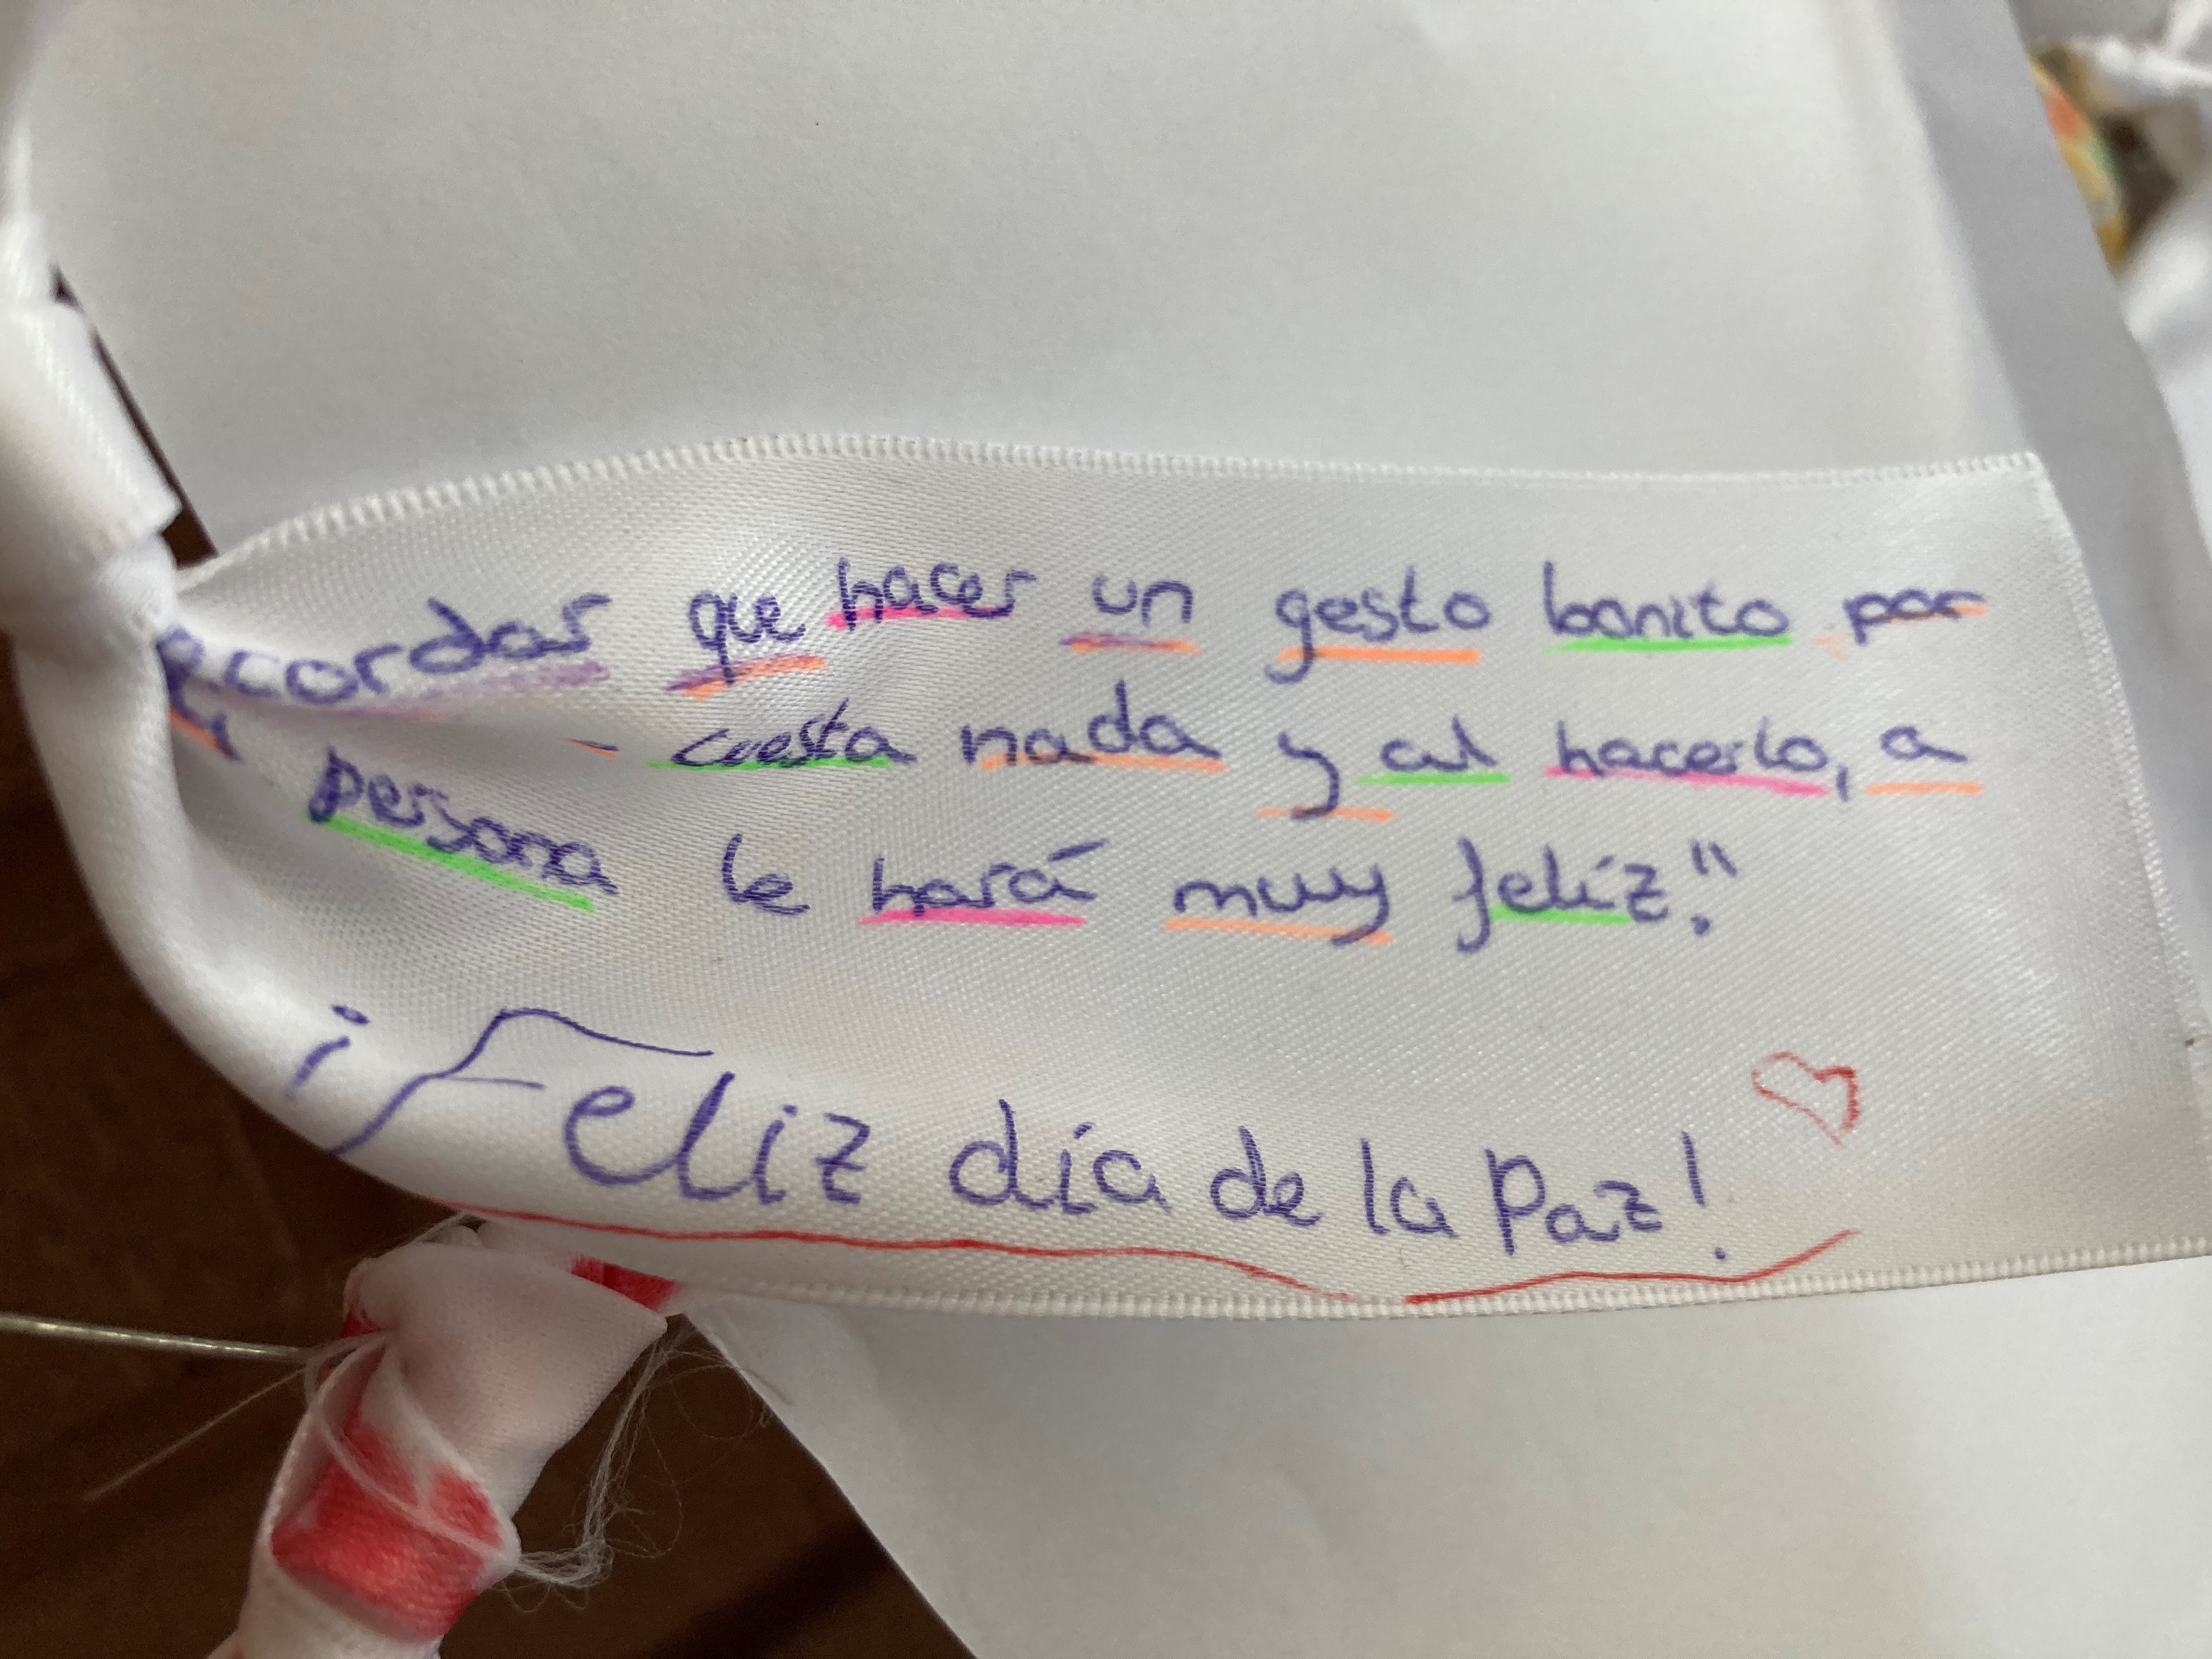 ecordar que hacer un gesto bonito por
cuesta nada y al hacerlo, a
persona le hará muy felíz."
¡Feliz día de la Paz!